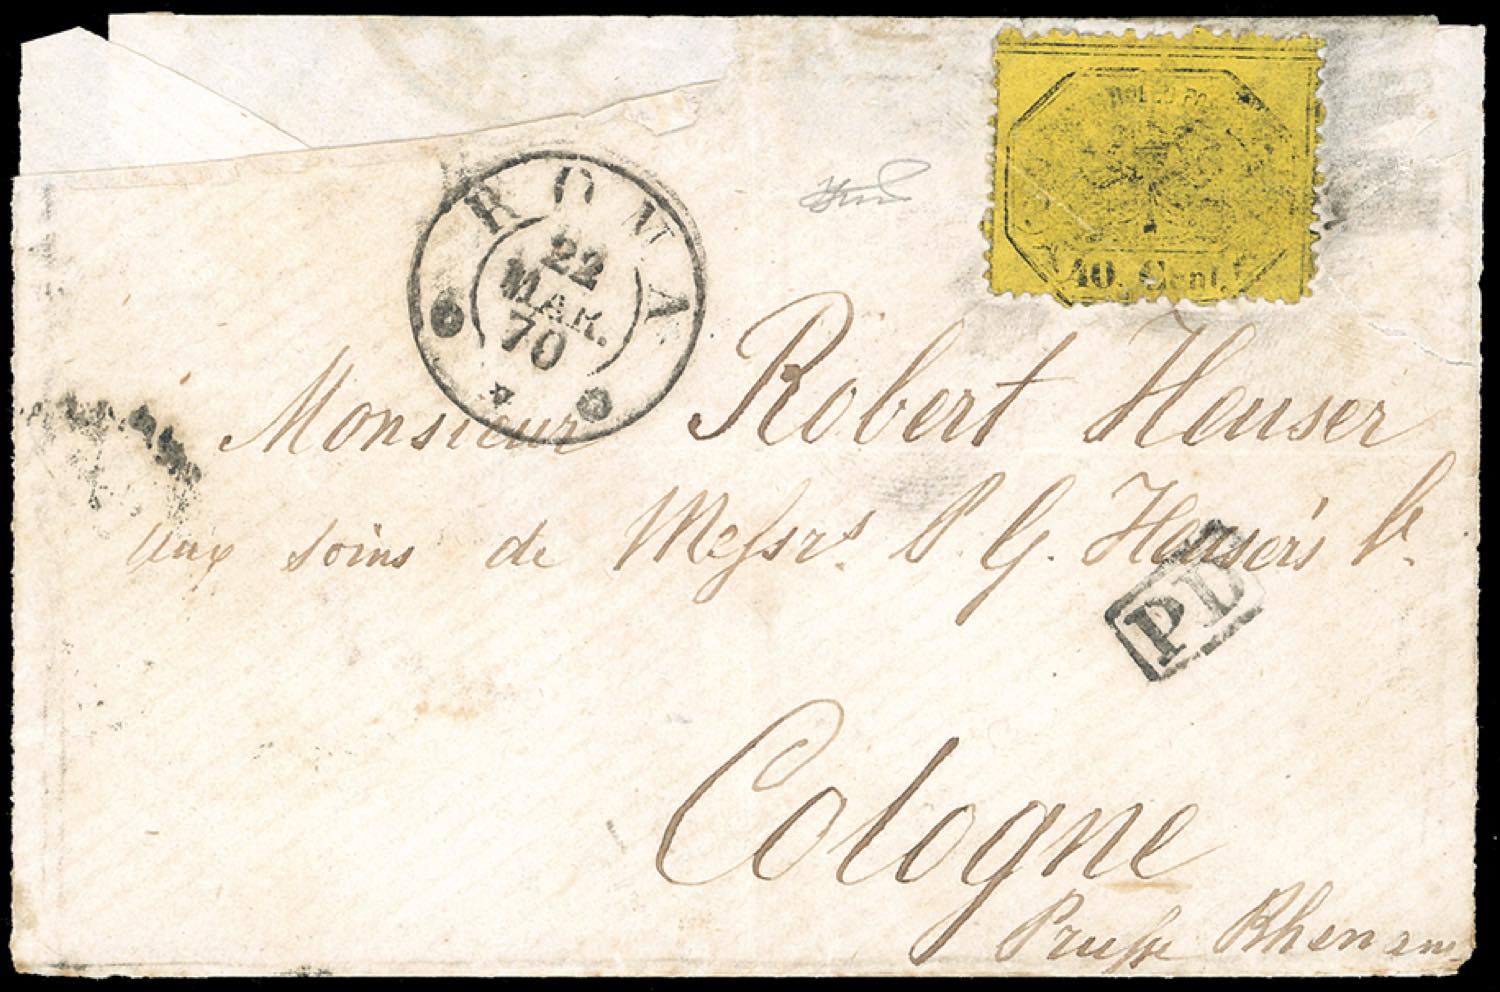 ROMA
22
MAR.
70
40. Cent.
Monsieur Robert Heuser
aux soins de Messrs. P. G. Heuser's
PD
Cologne
Prusse Rhenane